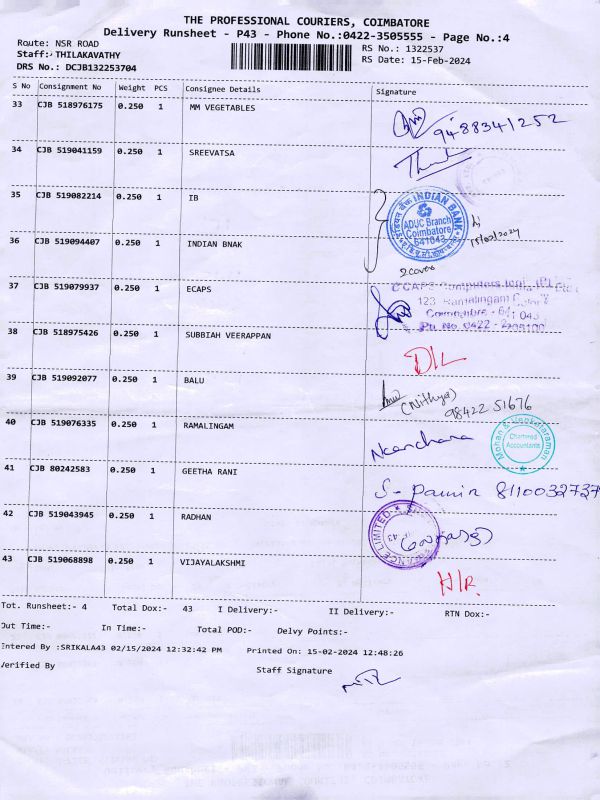 THE PROFESSIONAL COURIERS, COIMBATORE
Delivery Runsheet - P43 - Phone No.:0422-3505555 - Page No.:4
Route: NSR ROAD
Staff:- THILAKAVATHY
DRS No.: DCJB132253704
RS No.: 1322537
RS Date: 15-Feb-2024
S No Consignment No Weight PCS Consignee Details Signature
33 CJB 518976175 0.250 1 MM VEGETABLES 9488341252
34 CJB 519041159 0.250 1 SREEVATSA
35 CJB 519082214 0.250 1 IB
INDIAN BANK
ADUC Branch
Coimbatore
641043
15/02/2024
36 CJB 519094407 0.250 1 INDIAN BNAK
37 CJB 519079937 0.250 1 ECAPS
123 Ramalingam
38 CJB 518975426 0.250 1 SUBBIAH VEERAPPAN D/L
39 CJB 519092077 0.250 1 BALU
(Nithya)
98422 51676
40 CJB 519076335 0.250 1 RAMALINGAM
Mohan & Venkataraman
Chartered
Accountants
41 CJB 80242583 0.250 1 GEETHA RANI 8110032737
42 CJB 519043945 0.250 1 RADHAN
43 CJB 519068898 0.250 1 VIJAYALAKSHMI
Tot. Runsheet:- 4 Total Dox:- 43 I Delivery:- II Delivery:- RTN Dox:-
Out Time:- In Time:- Total POD:- Delvy Points:-
Entered By :SRIKALA43 02/15/2024 12:32:42 PM Printed On: 15-02-2024 12:48:26
Verified By Staff Signature